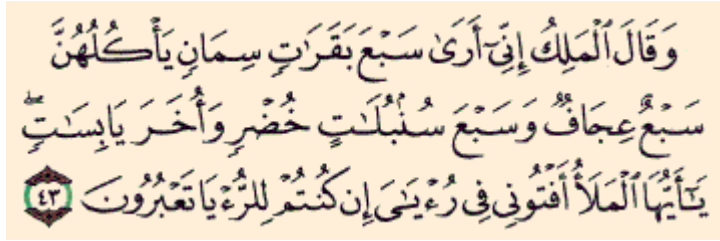 وَقَالَ ٱلْمَلِكُ إِنِّىٓ أَرَىٰ سَبْعَ بَقَرَٰتٍ سِمَانٍ يَأْكُلُهُنَّ
سَبْعٌ عِجَافٌ وَسَبْعَ سُنۢبُلَٰتٍ خُضْرٍ وَأُخَرَ يَابِسَٰتٍ ۖ
يَٰٓأَيُّهَا ٱلْمَلَأُ أَفْتُونِى فِى رُءْيَٰىَ إِن كُنتُمْ لِلرُّءْيَا تَعْبُرُونَ ٤٣